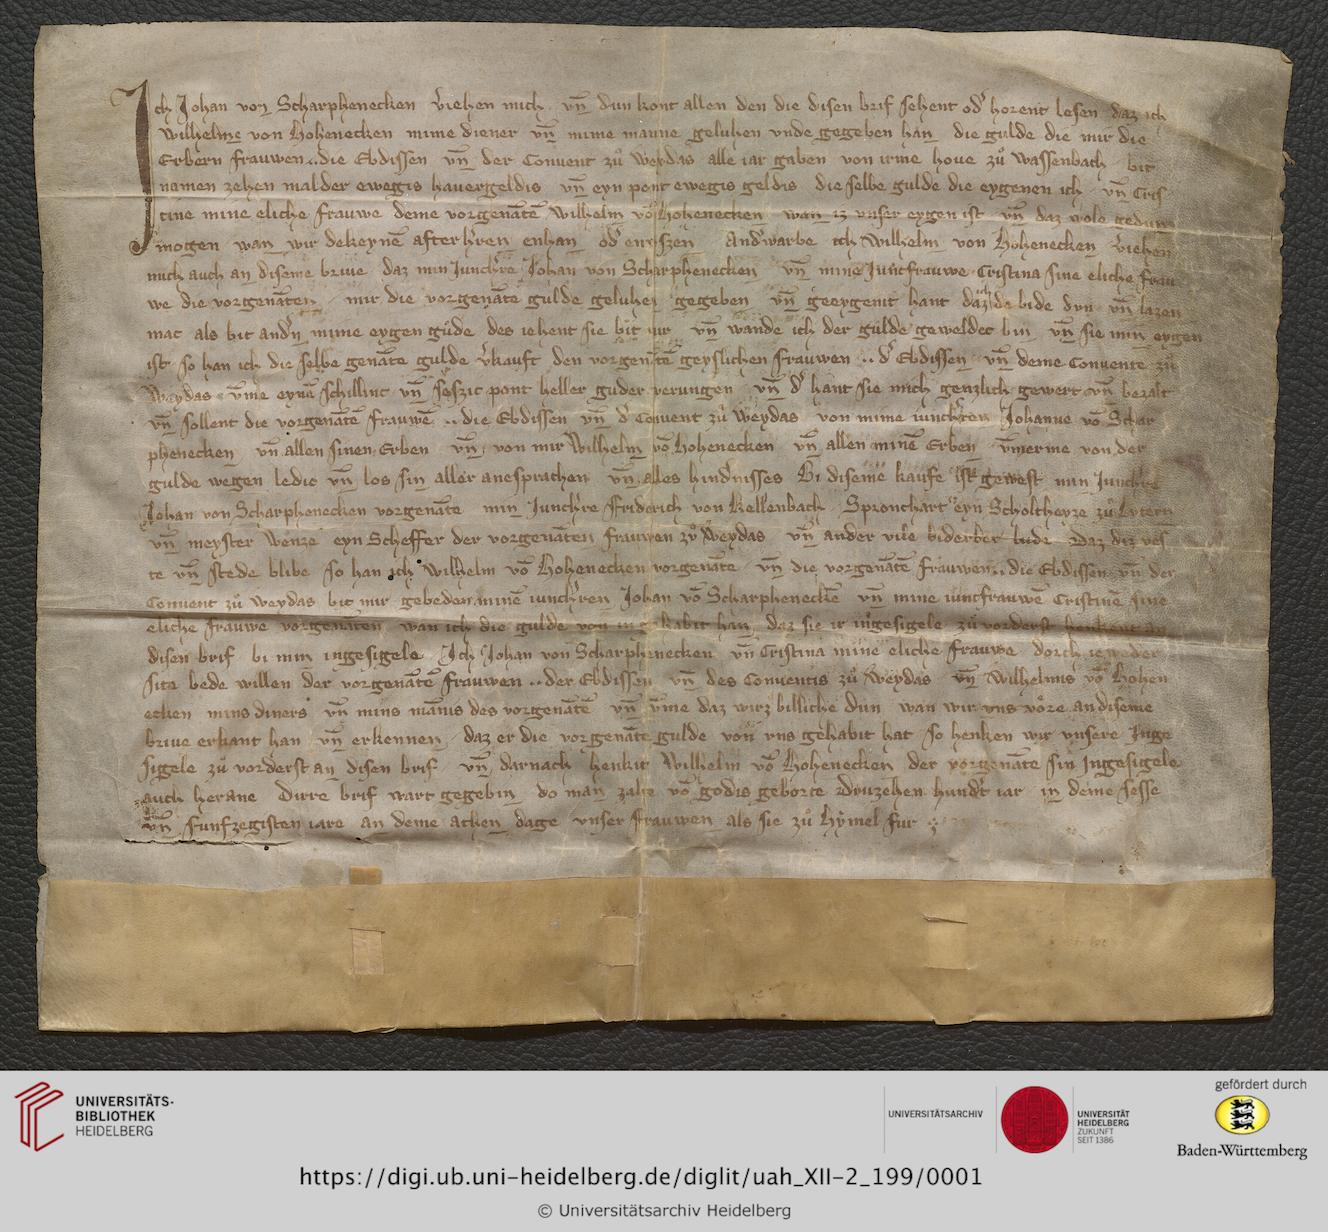 Ich Johan von Scharphenecken v̓iehen mich vn̄ dun kont allen den die disen brif sehent od̓ horent lesen daz ich
Wilhelme von Hohenecken mime diener vn̄ mime manne geluhen vnde gegeben han die gulde die mir die
Erbern frauwen .. die Ebdissen vn̄ der Conuent zů Weydas alle iar gaben von irme houe zů Wassenbach bit
namen zehen malder ewegis hauergeldis vn̄ eyn pont ewegis geldis die selbe gulde die eygenen ich vn̄ Cris
tine mine eliche frauwe deme vorgenāten Wilhelm vō Hohenecken wan iz vnser eygen ist vn̄ daz wole gedun
mogen wan wir dekeynē after h̓ren enhan od̓ and̓warbe ich Wilhelm von Hohenecken v̓iehen
mich auch an diseme briue daz min Junch̓re Johan von Scharphenecken vn̄ mine Juncfrauwe Cristina sine eliche frau
we die vorgenāten mir die vorgenāte gulde geluhen gegeben vn̄ geeygenit hant da bide dun vn̄ lazen
mac als bit and̓n mime eygen gůde des iehent sie bit mir vn̄ wande ich der gulde geweldec bin vn̄ sie min eygen
ist so han ich die selbe genāte gulde v̓kauft den vorgenāten geyslichen frauwen .. d̓ Ebdissen vn̄ deme Conuente zů
Weydas vm̄e eynē schillinc vn̄ seszic pont heller guder werungen vn̄ d̓ hant sie mich genzlich gewert vn̄ bezalt
vn̄ sollent die vorgenātē frauwē .. die Ebdissen vn̄ d̓ Conuent zů Weydas von mime iunch̓ren Johanne vō Schar
phenecken vn̄ allen sinen Erben vn̄ von mir Wilhelm vō Hohenecken vn̄ allen minē Erben vm̄erme von der
gulde wegen ledic vn̄ los sin aller anesprachen vn̄ alles hindnisses Bi diseme kaufe ist gewest min Junch̓re
Johan von Scharphenecken vorgenāte min Junch̓re ffriderich von Kellenbach Spronchart eyn Scholtheyze zů Lutern
vn̄ meyster Wenze eyn Scheffer der vorgenāten frauwen zů Weydas vn̄ ander vile biderber lude Daz diz ves
te vn̄ stede blibe so han ich Wilhelm vō Hohenecken vorgenāte vn̄ die vorgenātē frauwen .. die Ebdissen vn̄ der
Conuent zů Weydas bit mir gebeden minē iunch̓ren Johan vō Scharpheneckē vn̄ mine iuncfrauwē Cristinē sine
eliche frauwe vorgenāten wan ich die gulde von in gehabit han daz sie ir ingesigele zů vorderst henkent an
disen brif bi min ingesigele Ich Johan von Scharphenecken vn̄ Cristina mine eliche frauwe dorch ieweder
site bede willen der vorgenātē frauwen .. der Ebdissen vn̄ des Conuentis zů Weydas vn̄ Wilhelmis vō Hohen
ecken mins diners vn̄ mins mānis des vorgenātē vn̄ vm̄e daz wirz billiche dun wan wir vns vore an diseme
briue erkant han vn̄ erkennen daz er die vorgenāte gulde von vns gehabit hat so henken wir vnsere Inge
sigele zů vorderst an disen brif vn̄ darnach henkit Wilhelm vō Hohenecken der vorgenāte sin Ingesigele
auch herane Dirre brif wart gegebin do man zalte vō godis geborte Druzehen hund̓t iar in deme sesse
vn̄ funfzegisten iare an deme achten dage vnser frauwen als sie zů hymel fur
UNIVERSITÄTS-
BIBLIOTHEK
HEIDELBERG
UNIVERSITÄTSARCHIV
UNIVERSITÄT
HEIDELBERG
ZUKUNFT
SEIT 1386
gefördert durch
Baden-Württemberg
https://digi.ub.uni-heidelberg.de/diglit/uah_XII-2_199/0001
© Universitätsarchiv Heidelberg